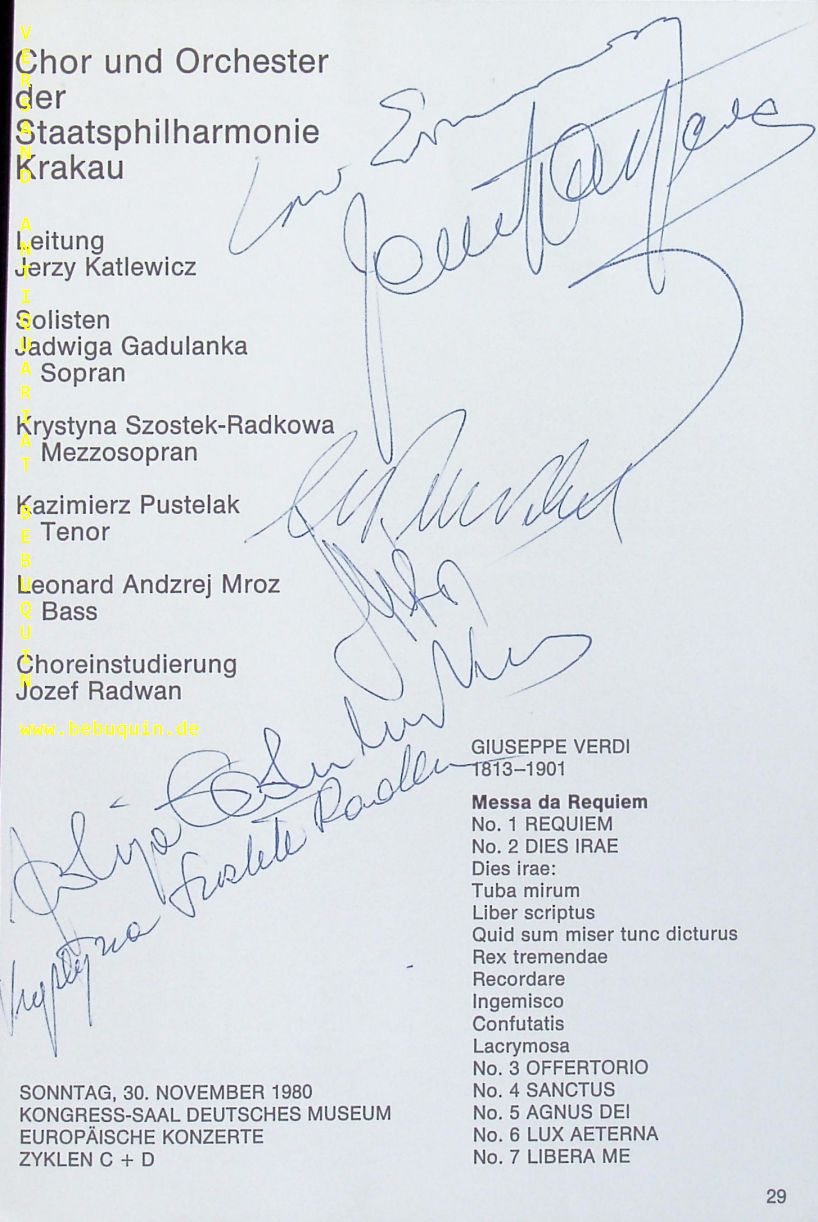 Chor und Orchester
der
Staatsphilharmonie
Krakau
Leitung
Jerzy Katlewicz
Solisten
Jadwiga Gadulanka
Sopran
Krystyna Szostek-Radkowa
Mezzosopran
Kazimierz Pustelak
Tenor
Leonard Andzrej Mroz
Bass
Choreinstudierung
Jozef Radwan
VERSAND ANTIQUARIAT BEBUQUIN
www.bebuquin.de
Krystyna
GIUSEPPE VERDI
1813–1901
Messa da Requiem
No. 1 REQUIEM
No. 2 DIES IRAE
Dies irae:
Tuba mirum
Liber scriptus
Quid sum miser tunc dicturus
Rex tremendae
Recordare
Ingemisco
Confutatis
Lacrymosa
No. 3 OFFERTORIO
No. 4 SANCTUS
No. 5 AGNUS DEI
No. 6 LUX AETERNA
No. 7 LIBERA ME
SONNTAG, 30. NOVEMBER 1980
KONGRESS-SAAL DEUTSCHES MUSEUM
EUROPÄISCHE KONZERTE
ZYKLEN C + D
29